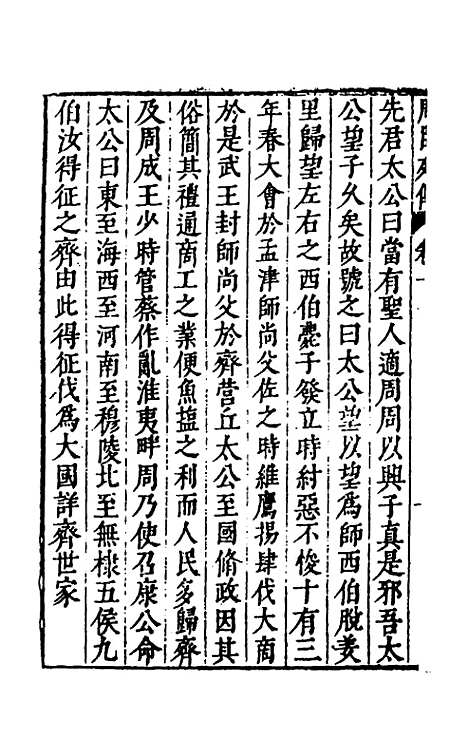 先君太公曰當有聖人適周周以興子真是邪吾太
公望子久矣故號之曰太公望以望為師西伯脫羑
里歸望左右之西伯薨子發立時紂惡不悛十有三
年春大會於孟津師尚父佐之時維鷹揚肆伐大商
於是武王封師尚父於齊營丘太公至國脩政因其
俗簡其禮通商工之業便魚塩之利而人民多歸齊
及周成王少時管蔡作亂淮夷畔周乃使召康公命
太公曰東至海西至河南至穆陵北至無棣五侯九
伯汝得征之齊由此得征伐爲大國詳齊世家